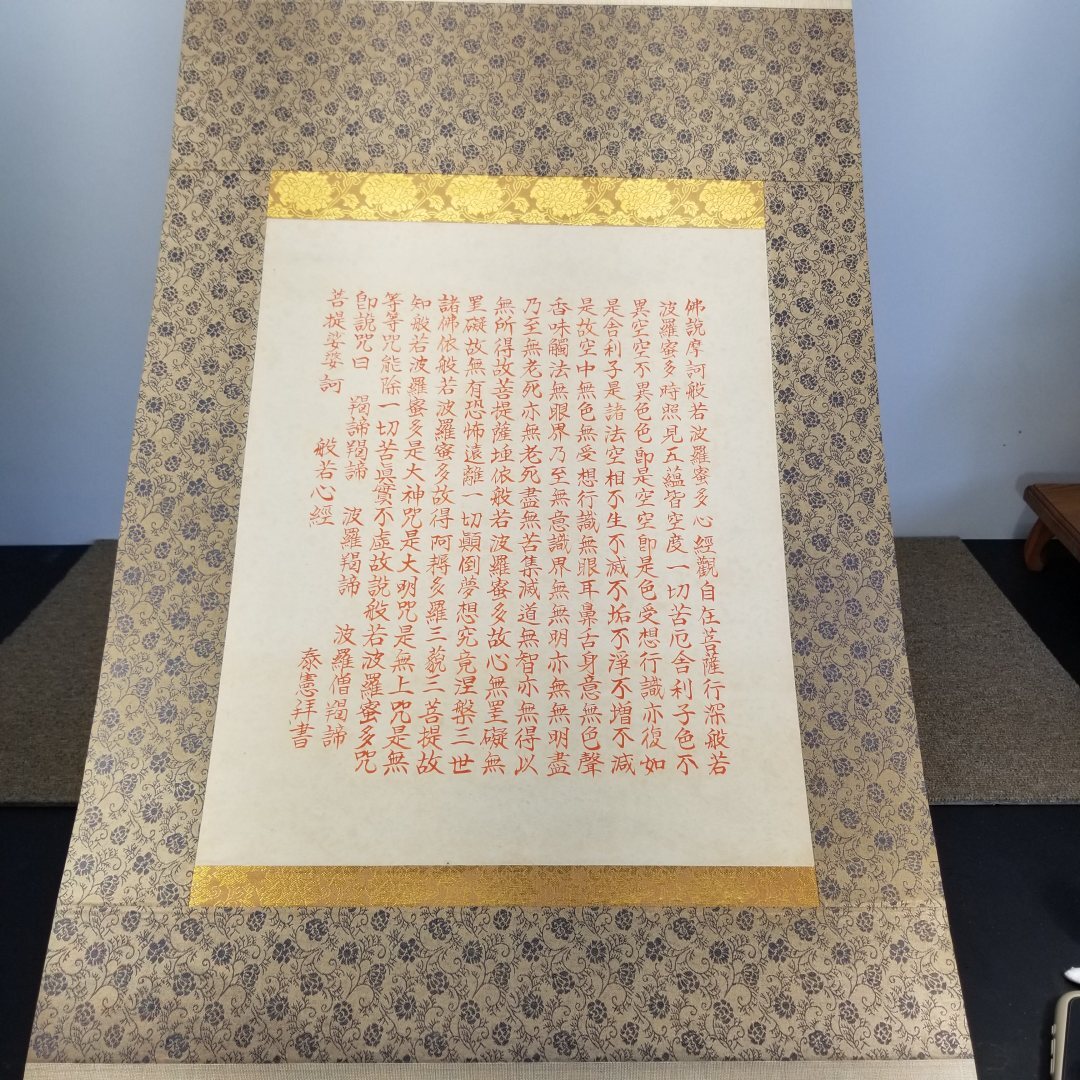 佛說摩訶般若波羅蜜多心經觀自在菩薩行深般若
波羅蜜多時照見五蘊皆空度一切苦厄舍利子色不
異空空不異色色即是空空即是色受想行識亦復如
是舍利子是諸法空相不生不滅不垢不淨不增不減
是故空中無色無受想行識無眼耳鼻舌身意無色聲
香味觸法無眼界乃至無意識界無無明亦無無明盡
乃至無老死亦無老死盡無苦集滅道無智亦無得以
無所得故菩提薩埵依般若波羅蜜多故心無罣礙無
罣礙故無有恐怖遠離一切顛倒夢想究竟涅槃三世
諸佛依般若波羅蜜多故得阿耨多羅三藐三菩提故
知般若波羅蜜多是大神咒是大明咒是無上咒是無
等等咒能除一切苦眞實不虛故說般若波羅蜜多咒
即說咒曰 羯諦羯諦 波羅羯諦 波羅僧羯諦
菩提娑婆訶
般若心經
泰憲拜書